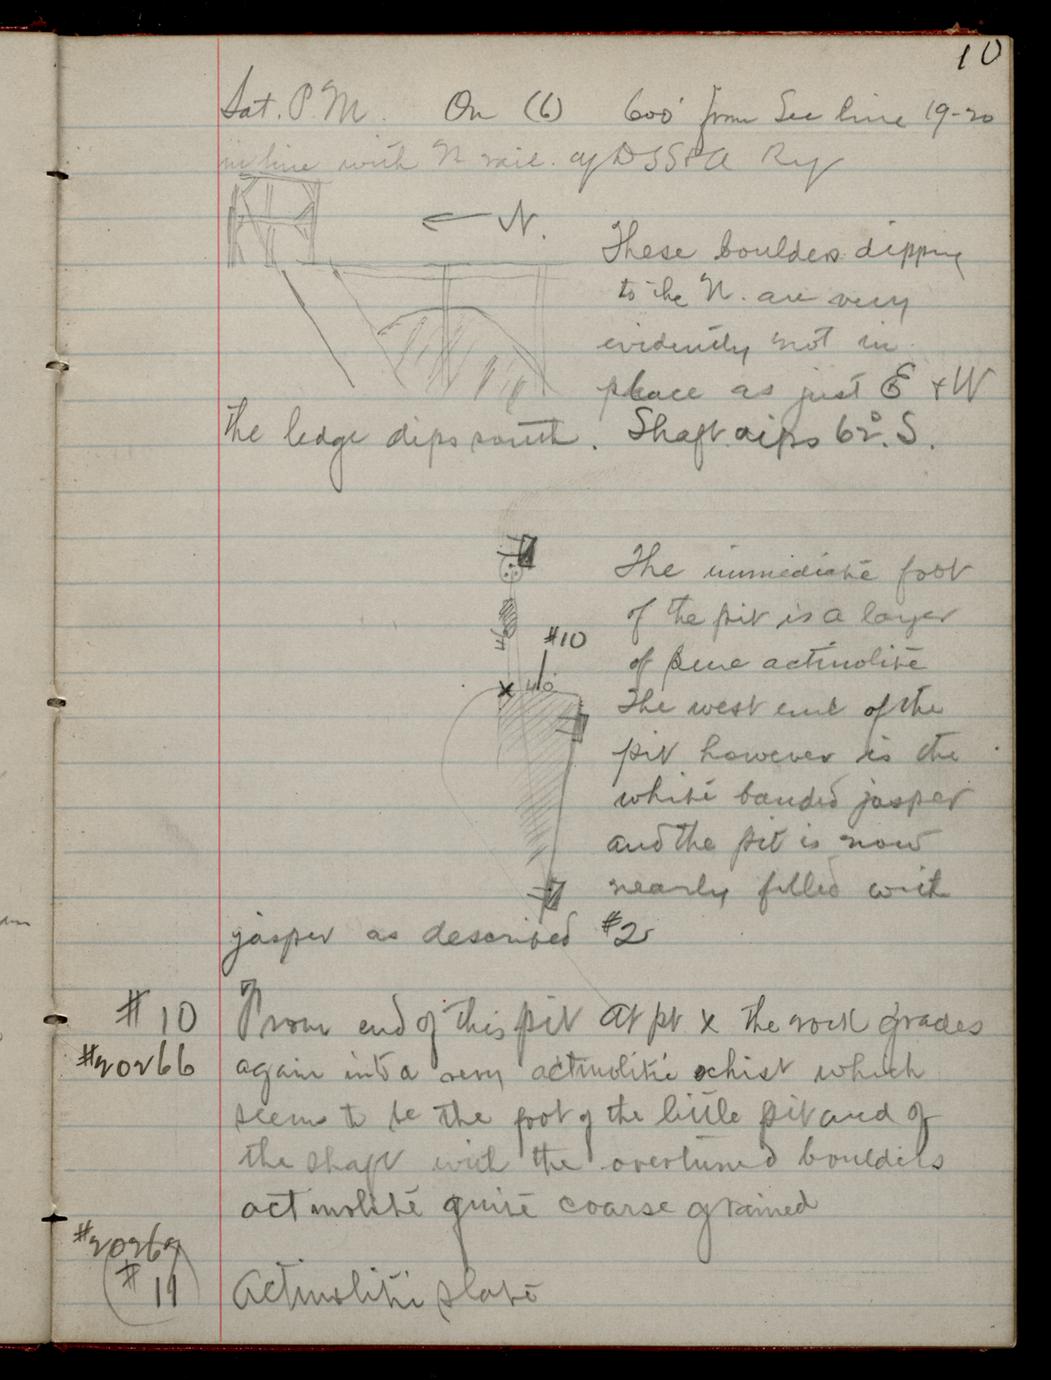 10
Sat. P.M. On (6) 600' from Sec line 19-20
in line with N rail. of DSS&A Ry
← N.
These boulders dipping
to the N. are very
evidently not in
place as just E + W
the ledge dips south. Shaft dips 62°. S.
The immediate foot
of the pit is a layer
#10
of pure actinolite
X 40'
The west end of the
pit however is the
white banded jasper
and the pit is now
nearly filled with
jasper as described #2
#10 From end of this pit at pt x the rock grades
#20266 again into a very actinolitic schist which
seems to be the foot of the little pit and of
the shaft with the overturned boulders
actinolite quite coarse grained
#20267
(#11) Actinolitic slate